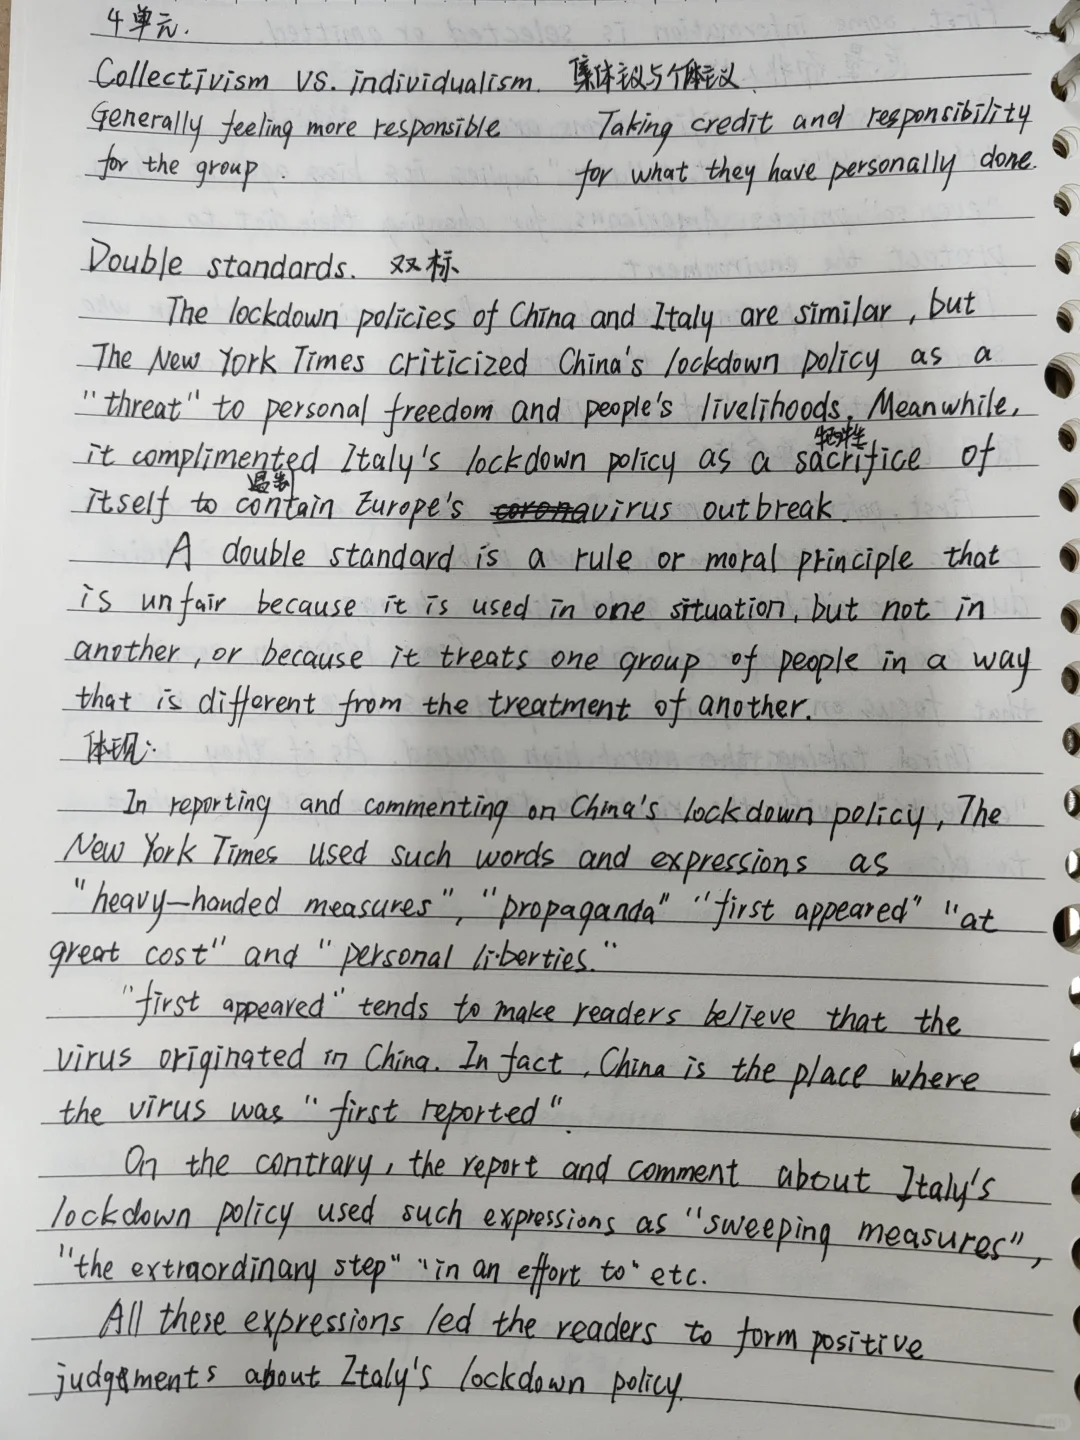 4单元.
Collectivism VS. individualism. 集体主义与个体主义
Generally feeling more responsible Taking credit and responsibility
for the group. for what they have personally done.
Double standards. 双标
The lockdown policies of China and Italy are similar, but
The New York Times criticized China's lockdown policy as a
"threat" to personal freedom and people's livelihoods. Meanwhile,
牺牲
it complimented Italy's lockdown policy as a sacrifice of
遏制
itself to contain Europe's virus outbreak.
A double standard is a rule or moral principle that
is unfair because it is used in one situation, but not in
another, or because it treats one group of people in a way
that is different from the treatment of another.
体现:
In reporting and commenting on China's lockdown policiy, The
New York Times used such words and expressions as
"heavy-handed measures", "propaganda" "first appeared" "at
great cost" and "personal liberties."
"first appeared" tends to make readers believe that the
virus originated in China. In fact, China is the place where
the virus was "first reported".
On the contrary, the report and comment about Italy's
lockdown policy used such expressions as "sweeping measures",
"the extraordinary step" "in an effort to" etc.
All these expressions led the readers to form positive
judgements about Italy's lockdown policy.